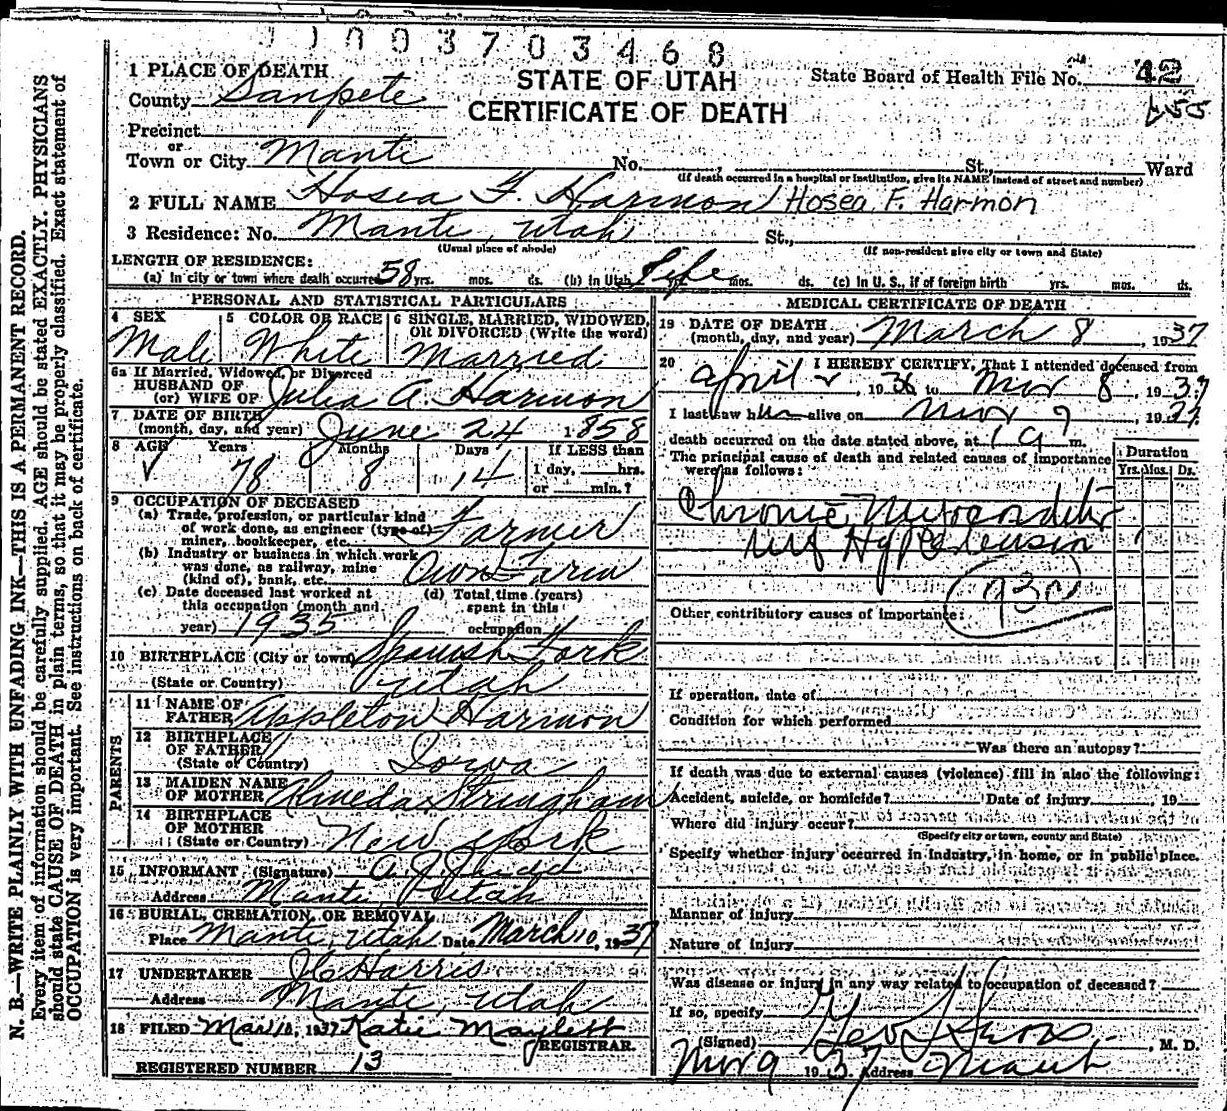 0 0 3 7 0 3 4 6 8
1 PLACE OF DEATH
STATE OF UTAH
CERTIFICATE OF DEATH
State Board of Health File No. 42
County Sanpete
Precinct
or
Town or City Manti No. St., Ward
(If death occurred in a hospital or institution, give its NAME instead of street and number)
2 FULL NAME Hosea F. Harmon Hosea F. Harmon
3 Residence: No. Manti, Utah St.,
(Usual place of abode) (If non-resident give city or town and State)
LENGTH OF RESIDENCE:
(a) In city or town where death occurred 58 yrs. mos. ds. (b) In Utah Life mos. ds. (c) In U. S., if of foreign birth yrs. mos. ds.
PERSONAL AND STATISTICAL PARTICULARS
4 SEX Male
5 COLOR OR RACE White
6 SINGLE, MARRIED, WIDOWED, OR DIVORCED (Write the word) Married
6a If Married, Widowed, or Divorced
HUSBAND OF
(or) WIFE OF Julia A. Harmon
7 DATE OF BIRTH
(month, day, and year) June 24 1858
8 AGE Years Months Days If LESS than
78 8 14 1 day, hrs.
or min.?
9 OCCUPATION OF DECEASED
(a) Trade, profession, or particular kind
of work done, as engineer (type of)
miner, bookkeeper, etc. Farmer
(b) Industry or business in which work
was done, as railway, mine
(kind of), bank, etc. Own Farm
(c) Date deceased last worked at
this occupation (month and
year) 1935
(d) Total time (years)
spent in this
occupation
10 BIRTHPLACE (City or town) Spanish Fork
(State or Country) Utah
PARENTS
11 NAME OF
FATHER Appleton Harmon
12 BIRTHPLACE
OF FATHER
(State or Country) Iowa
13 MAIDEN NAME
OF MOTHER Almeda Stringham
14 BIRTHPLACE
OF MOTHER
(State or Country) New York
15 INFORMANT (Signature) A. J.
Address Manti, Utah
16 BURIAL, CREMATION, OR REMOVAL
Place Manti, Utah Date March 10, 1937
17 UNDERTAKER Harris
Address Manti, Utah
18 FILED Mar 10, 1937 Katie Maylett
REGISTRAR.
REGISTERED NUMBER 13
MEDICAL CERTIFICATE OF DEATH
19 DATE OF DEATH
(month, day, and year) March 8, 1937
20 I HEREBY CERTIFY, That I attended deceased from
April, 1936 to Mar 8, 1937
I last saw him alive on Mar 7, 1937
death occurred on the date stated above, at 1 a m.
The principal cause of death and related causes of importance
were as follows:
Duration
Yrs. Mos. Ds.
Chronic Myocarditis
Hypertension
930
Other contributory causes of importance:
If operation, date of
Condition for which performed
Was there an autopsy?
If death was due to external causes (violence) fill in also the following:
Accident, suicide, or homicide? Date of injury, 19
Where did injury occur?
(Specify city or town, county and State)
Specify whether injury occurred in industry, in home, or in public place.
Manner of injury
Nature of injury
Was disease or injury in any way related to occupation of deceased?
If so, specify
(Signed) Geo, M. D.
Mar 9 1937. Address Manti
N. B.—WRITE PLAINLY WITH UNFADING INK—THIS IS A PERMANENT RECORD.
Every item of information should be carefully supplied. AGE should be stated EXACTLY. PHYSICIANS
should state CAUSE OF DEATH in plain terms, so that it may be properly classified. Exact statement of
OCCUPATION is very important. See instructions on back of certificate.